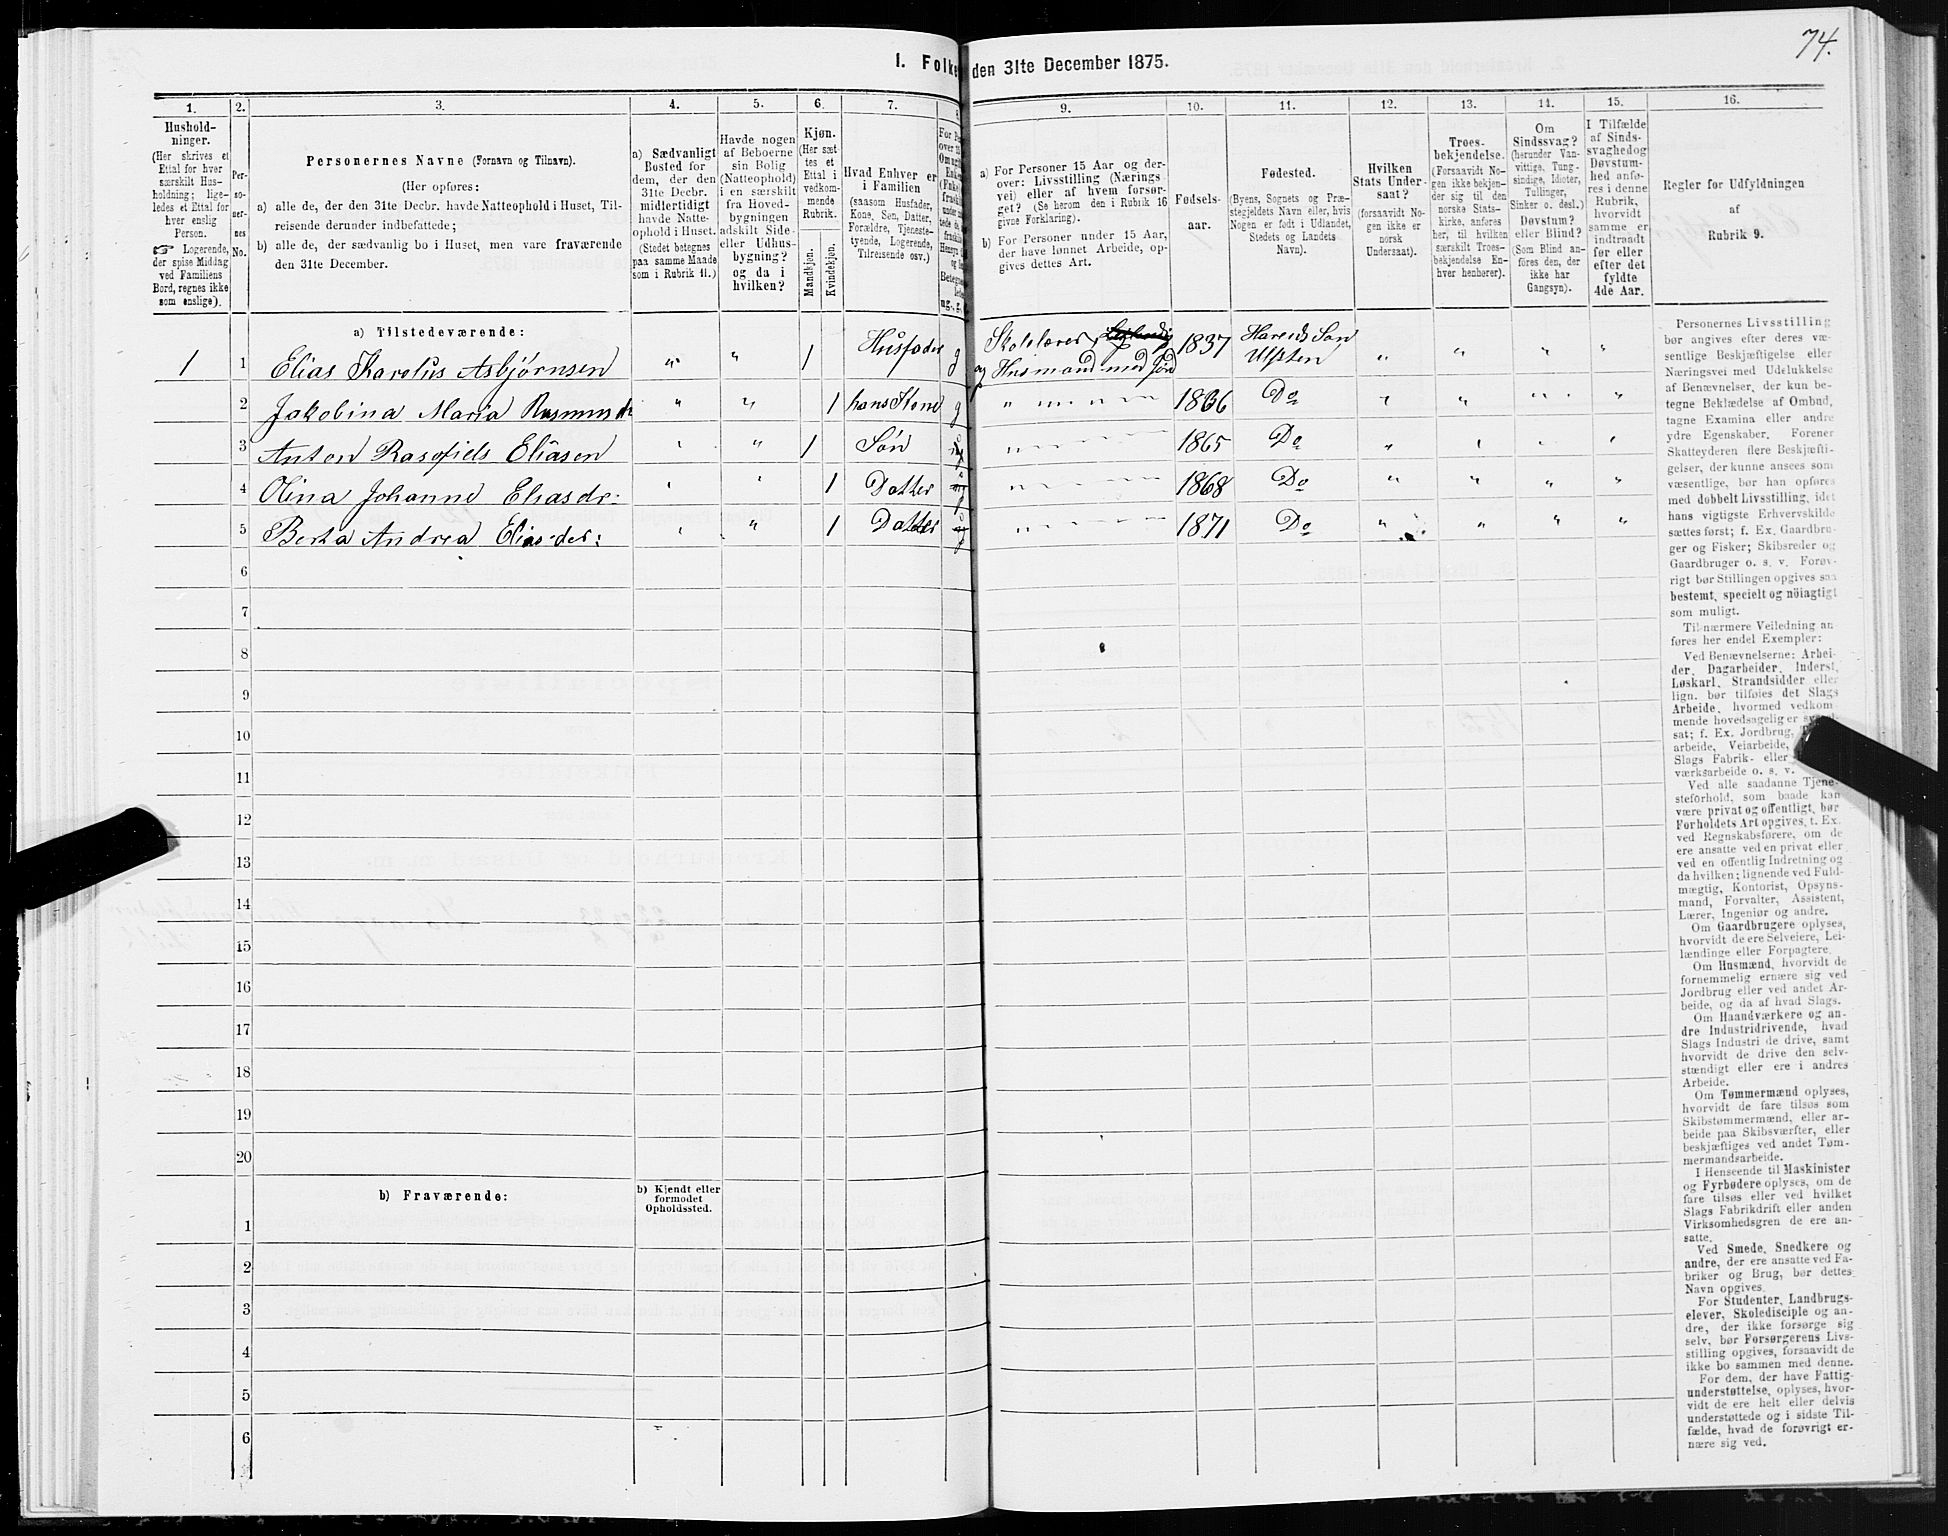 74.
I. Folke den 31te December 1875.
1. 2. 3. 4. 5. 6. 7. 8. 9. 10. 11. 12. 13. 14. 15. 16.
Hushold-
ninger.
(Her skrives et
Ettal for hver
særskilt Hus-
holdning; lige-
ledes et Ettal for
hver enslig
Person.
☞ Logerende,
der spise Middag
ved Familiens
Bord, regnes ikke
som enslige).
Per-
so-
ner-
nes
No.
Personernes Navne (Fornavn og Tilnavn).
(Her opføres:
a) alle de, der den 31te Decbr. havde Natteophold i Huset, Til-
reisende derunder indbefattede;
b) alle de, der sædvanlig bo i Huset, men vare fraværende
den 31te December.
a) Sædvanligt
Bosted for
dem, der den
31te Decbr.
midlertidigt
havde Natte-
ophold i Huset.
(Stedet betegnes
paa samme Maade
som i Rubrik 11.)
Havde nogen
af Beboerne
sin Bolig
(Natteophold)
i en særskilt
fra Hoved-
bygningen
adskilt Side-
eller Udhus-
bygning?
og da i
hvilken?
Kjøn.
(Her sæt-
tes et
Ettal i
vedkom-
mende
Rubrik.
Mandkjøn.
Kvindekjøn.
Hvad Enhver er
i Familien
(saasom Husfader,
Kone, Søn, Datter,
Forældre, Tjeneste-
tyende, Logerende,
Tilreisende osv.)
a) For Personer 15 Aar og der-
over: Livsstilling (Nærings-
vei) eller af hvem forsør-
get? (Se herom den i Rubrik 16
givne Forklaring).
b) For Personer under 15 Aar,
der have lønnet Arbeide, op-
gives dettes Art.
Fødsels-
aar.
Fødested.
(Byens, Sognets og Præ-
stegjeldets Navn eller, hvis
Nogen er født i Udlandet,
Stedets og Landets
Navn).
Hvilken
Stats Under-
saat?
(forsaavidt No-
gen ikke er
norsk
Undersaat).
Troes-
bekjendelse.
(Forsaavidt No-
gen ikke bekjen-
der sig til den
norske Stats-
kirke, anføres
her, til hvilken
særskilt Troes-
bekjendelse En-
hver henhører).
Om
Sindssvag?
(herunder Van-
vittige, Tung-
sindige, Idioter,
Tullinger,
Sinker o. desl.)
Døvstum?
eller Blind?
(Som Blind an-
føres den, der
ikke har
Gangsyn).
I Tilfælde
af Sinds-
svaghed og
Døvstum-
hed anfø-
res i denne
Rubrik,
hvorvidt
samme er
indtraadt
før eller
efter det
fyldte
4de Aar.
Regler for Udfyldningen
af
Rubrik 9.
a) Tilstedeværende:
1 1 Elias Karolus Asbjørnsen " " 1 Husfader g Skolelærer og Husmand med Jord 1837 Hareids Son Ulfsten " " " "
2 Jakobina Maria Rasmusdr " " 1 hans Kone g " " " " 1836 Do " " " "
3 Anton Rasofiels Eliasen " " 1 Søn " " " " 1865 Do " " " "
4 Olina Johanne Eliasdr: " " 1 Datter " " " " 1868 Do " " " "
5 Berta Andrea Eliasder: " " 1 Datter " " " " 1871 Do " " " "
6
7
8
9
10
11
12
13
14
15
16
17
18
19
20
b) Fraværende:
b) Kjendt eller
formodet
Opholdssted.
1
2
3
4
5
6
Personernes Livsstilling
bør angives efter deres væ-
sentlige Beskjæftigelse eller
Næringsvei med Udelukkelse
af Benævnelser, der kun be-
tegne Beklædelse af Ombud,
tagne Examina eller andre
ydre Egenskaber. Forener
Skatteyderen flere Beskjæfti-
gelser, der kunne ansees som
væsentlige, bør han opføres
med dobbelt Livsstilling, idet
hans vigtigste Erhvervskilde
sættes først; f. Ex. Gaardbru-
ger og Fisker; Skibsreder og
Gaardbruger o. s. v. Forøv-
rigt bør Stillingen opgives saa
bestemt, specielt og nøiagtigt
som muligt.
Til nærmere Veiledning an-
føres her endel Exempler:
Ved Benævnelserne: Arbei-
der, Dagarbeider, Inderst,
Løskarl, Strandsidder eller
lign. bør tilføies det Slags
Arbeide, hvormed vedkom-
mende hovedsagelig er syssel-
sat; f. Ex. Jordbrug,
arbeide, Veiarbeide,
Slags Fabrik- eller
værksarbeide o. s. v.
Ved alle saadanne Tjene-
steforhold, som baade kan
være privat og offentligt, bør
Forholdets Art opgives, t. Ex.
ved Regnskabsførere, om de
ere ansatte ved en privat eller
ved en offentlig Indretning og
da hvilken; lignende ved Fuld-
mægtig, Kontorist, Opsyns-
mand, Forvalter, Assistent,
Lærer, Ingeniør og andre.
Om Gaardbrugere oplyses,
hvorvidt de ere Selveiere, Lei-
lændinge eller Forpagtere.
Om Husmænd, hvorvidt de
fornemmelig ernære sig ved
Jordbrug eller ved andet Ar-
beide, og da af hvad Slags.
Om Haandværkere og an-
dre Industridrivende, hvad
Slags Industri de drive, samt
hvorvidt de drive den selv-
stændigt eller ere i andres
Arbeide.
Om Tømmermænd oplyses,
hvorvidt de fare tilsøs som
Skibstømmermænd, eller ar-
beide paa Skibsværfter, eller
beskjæftiges ved andet Tøm-
mermandsarbeide.
I Henseende til Maskinister
og Fyrbødere oplyses, om de
fare tilsøs eller ved hvilket
Slags Fabrikdrift eller anden
Virksomhedsgren de ere an-
satte.
Ved Smede, Snedkere og
andre, der ere ansatte ved Fa-
briker og Brug, bør dettes
Navn opgives.
For Studenter, Landbrugs-
elever, Skoledisciple og an-
dre, der ikke forsørge sig
selv, bør Forsørgerens Livs-
stilling opgives, forsaavidt de
ikke bo sammen med denne.
For dem, der have Fattig-
understøttelse, oplyses, hvor-
vidt de ere helt eller delvis
understøttede og i sidste Til-
fælde, hvad de forøvrigt er-
nære sig ved.